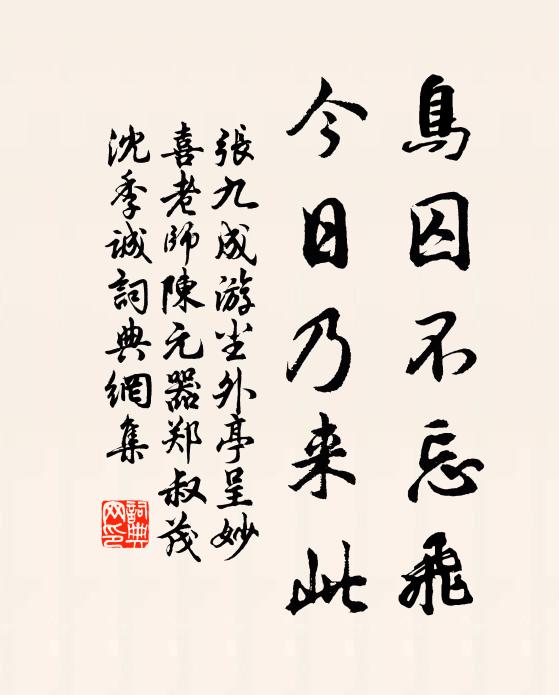 鳥囚不忘飛
今日乃来此
張九成游尘外亭呈妙
喜老師陳元器郑叔茂
沈季诚詞典網集
詞典
网印